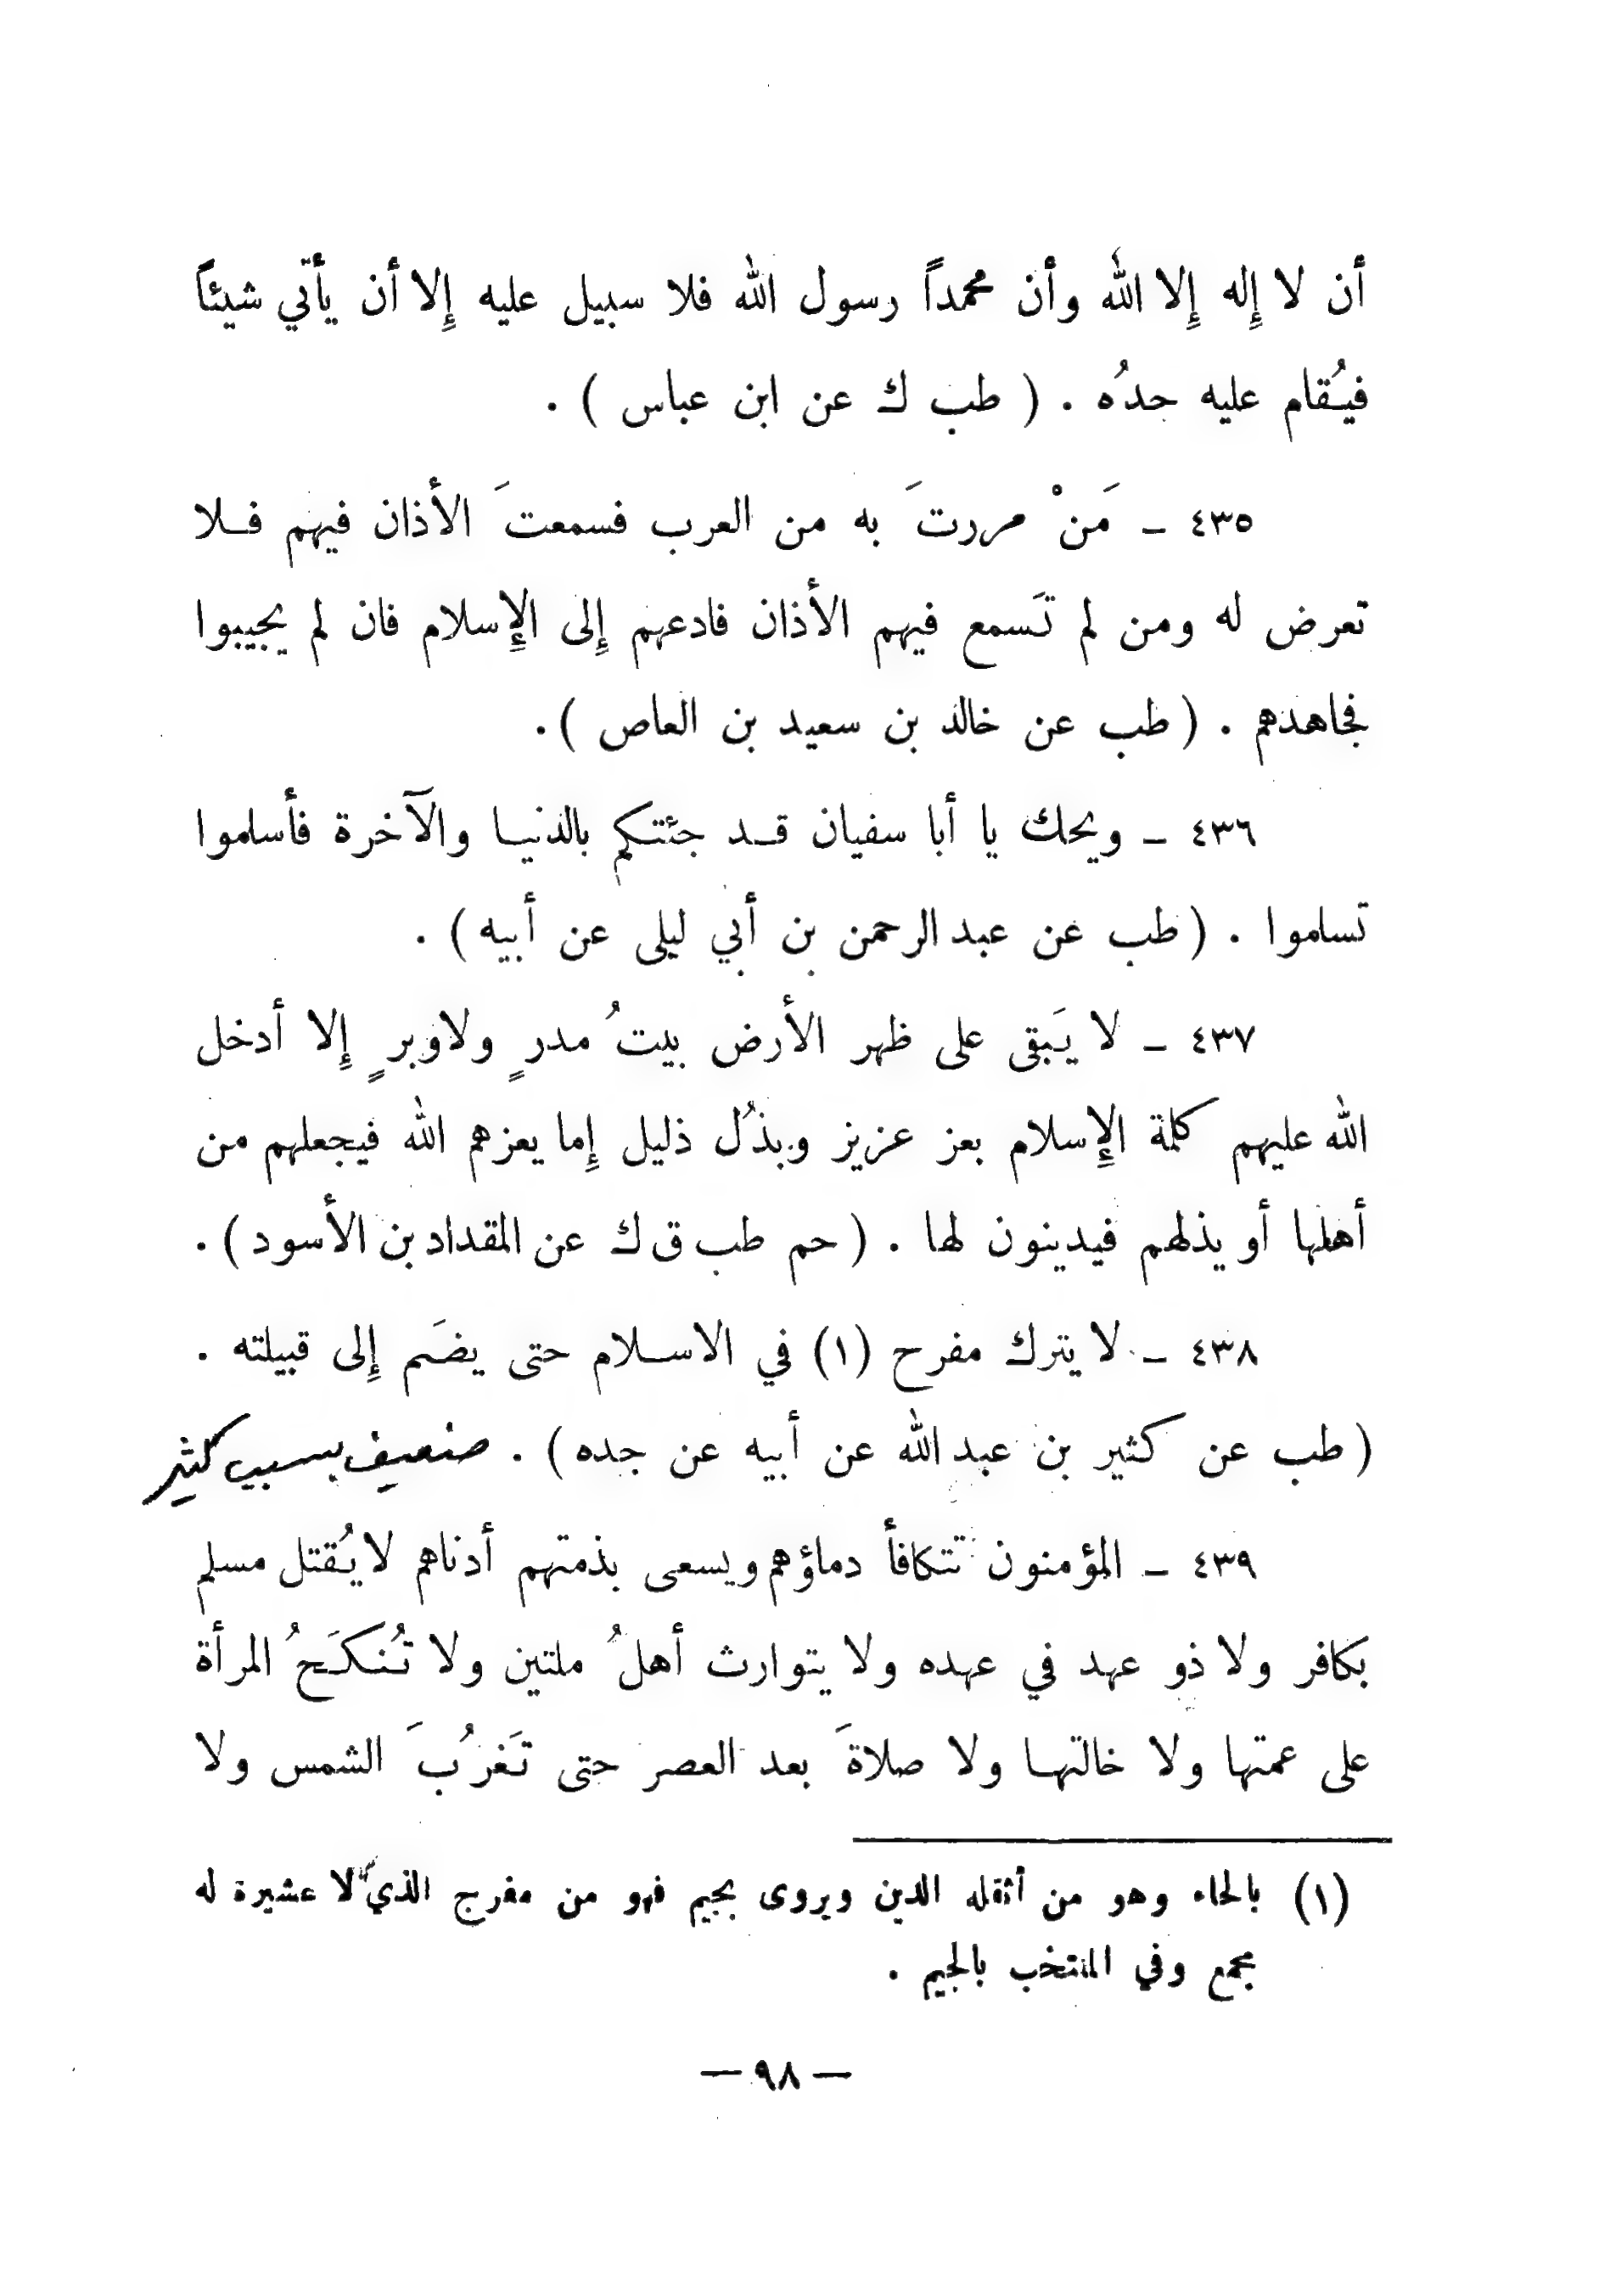 أن لا إله إلا الله وأن محمداً رسول الله فلا سبيل عليه إلا أن يأتي شيئاً
فيُقام عليه حدُه . ( طب ك عن ابن عباس ) .
٤٣٥ ــ مَنْ مررتَ به من العرب فسمعتَ الأذان فيهم فـلا
تعرض له ومن لم تَسمع فيهم الأذان فادعهم إلى الإسلام فان لم يجيبوا
فجاهدهم . ( طب عن خالد بن سعيد بن العاص ) .
٤٣٦ ــ ويحك يا أبا سفيان قـد جئتكم بالدنيـا والآخرة فأسلموا
تسلموا . ( طب عن عبد الرحمن بن أبي ليلى عن أبيه ) .
٤٣٧ ــ لا يَبقى على ظهر الأرض بيتُ مدرٍ ولا وبرٍ إلا أدخل
الله عليهم كلمة الإسلام بعز عزيز وبذُل ذليل إما يعزهم الله فيجعلهم من
أهلها أو يذلهم فيدينون لها . ( حم طب ق ك عن المقداد بن الأسود ) .
٤٣٨ ــ لا يترك مفرح (١) في الاسـلام حتى يضَم إلى قبيلته .
( طب عن كثير بن عبد الله عن أبيه عن جده ) . ضعيف بسبب كثير
٤٣٩ ــ المؤمنون تتكافأ دماؤهم ويسعى بذمتهم أدناهم لا يُقتل مسلم
بكافر ولا ذو عهد في عهده ولا يتوارث أهلُ ملتين ولا تُنكَحُ المرأة
على عمتها ولا خالتهـا ولا صلاةَ بعد العصر حتى تَغرُبَ الشمس ولا
(١) بالحاء وهو من أثقله الدين ويروى بجيم فهو من مفرج الذي لا عشيرة له
مجمع وفي المنتخب بالجيم .
— ٩٨ —